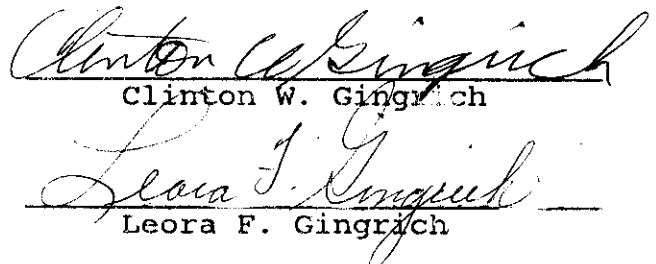 Clinton W Gingrich
Clinton W. Gingrich
Leora F. Gingrich
Leora F. Gingrich